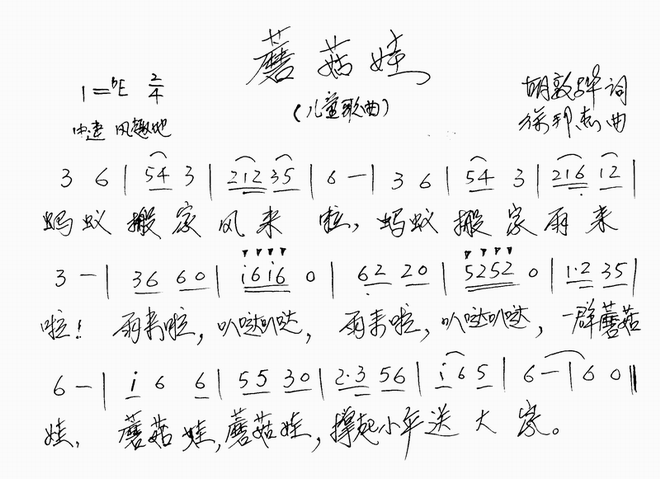 蘑菇娃
(儿童歌曲)
1=ᵇE 2/4
中速 风趣地
胡敦骅 词
徐邦杰 曲
3 6 | 54 3 | 212 35 | 6 — | 3 6 | 54 3 | 216 12 |
蚂蚁 搬 家 风 来 啦, 蚂蚁 搬 家 雨 来
3 — | 36 60 | i6i6 0 | 62 20 | 5252 0 | 1·2 35 |
啦! 雨来啦, 叭哒叭哒, 雨来啦, 叭哒叭哒, 一群蘑菇
6 — | i 6 6 | 55 30 | 2·3 56 | i65 | 6 — | 60 ‖
娃, 蘑菇 娃,蘑菇娃, 撑起小伞送 大 家。